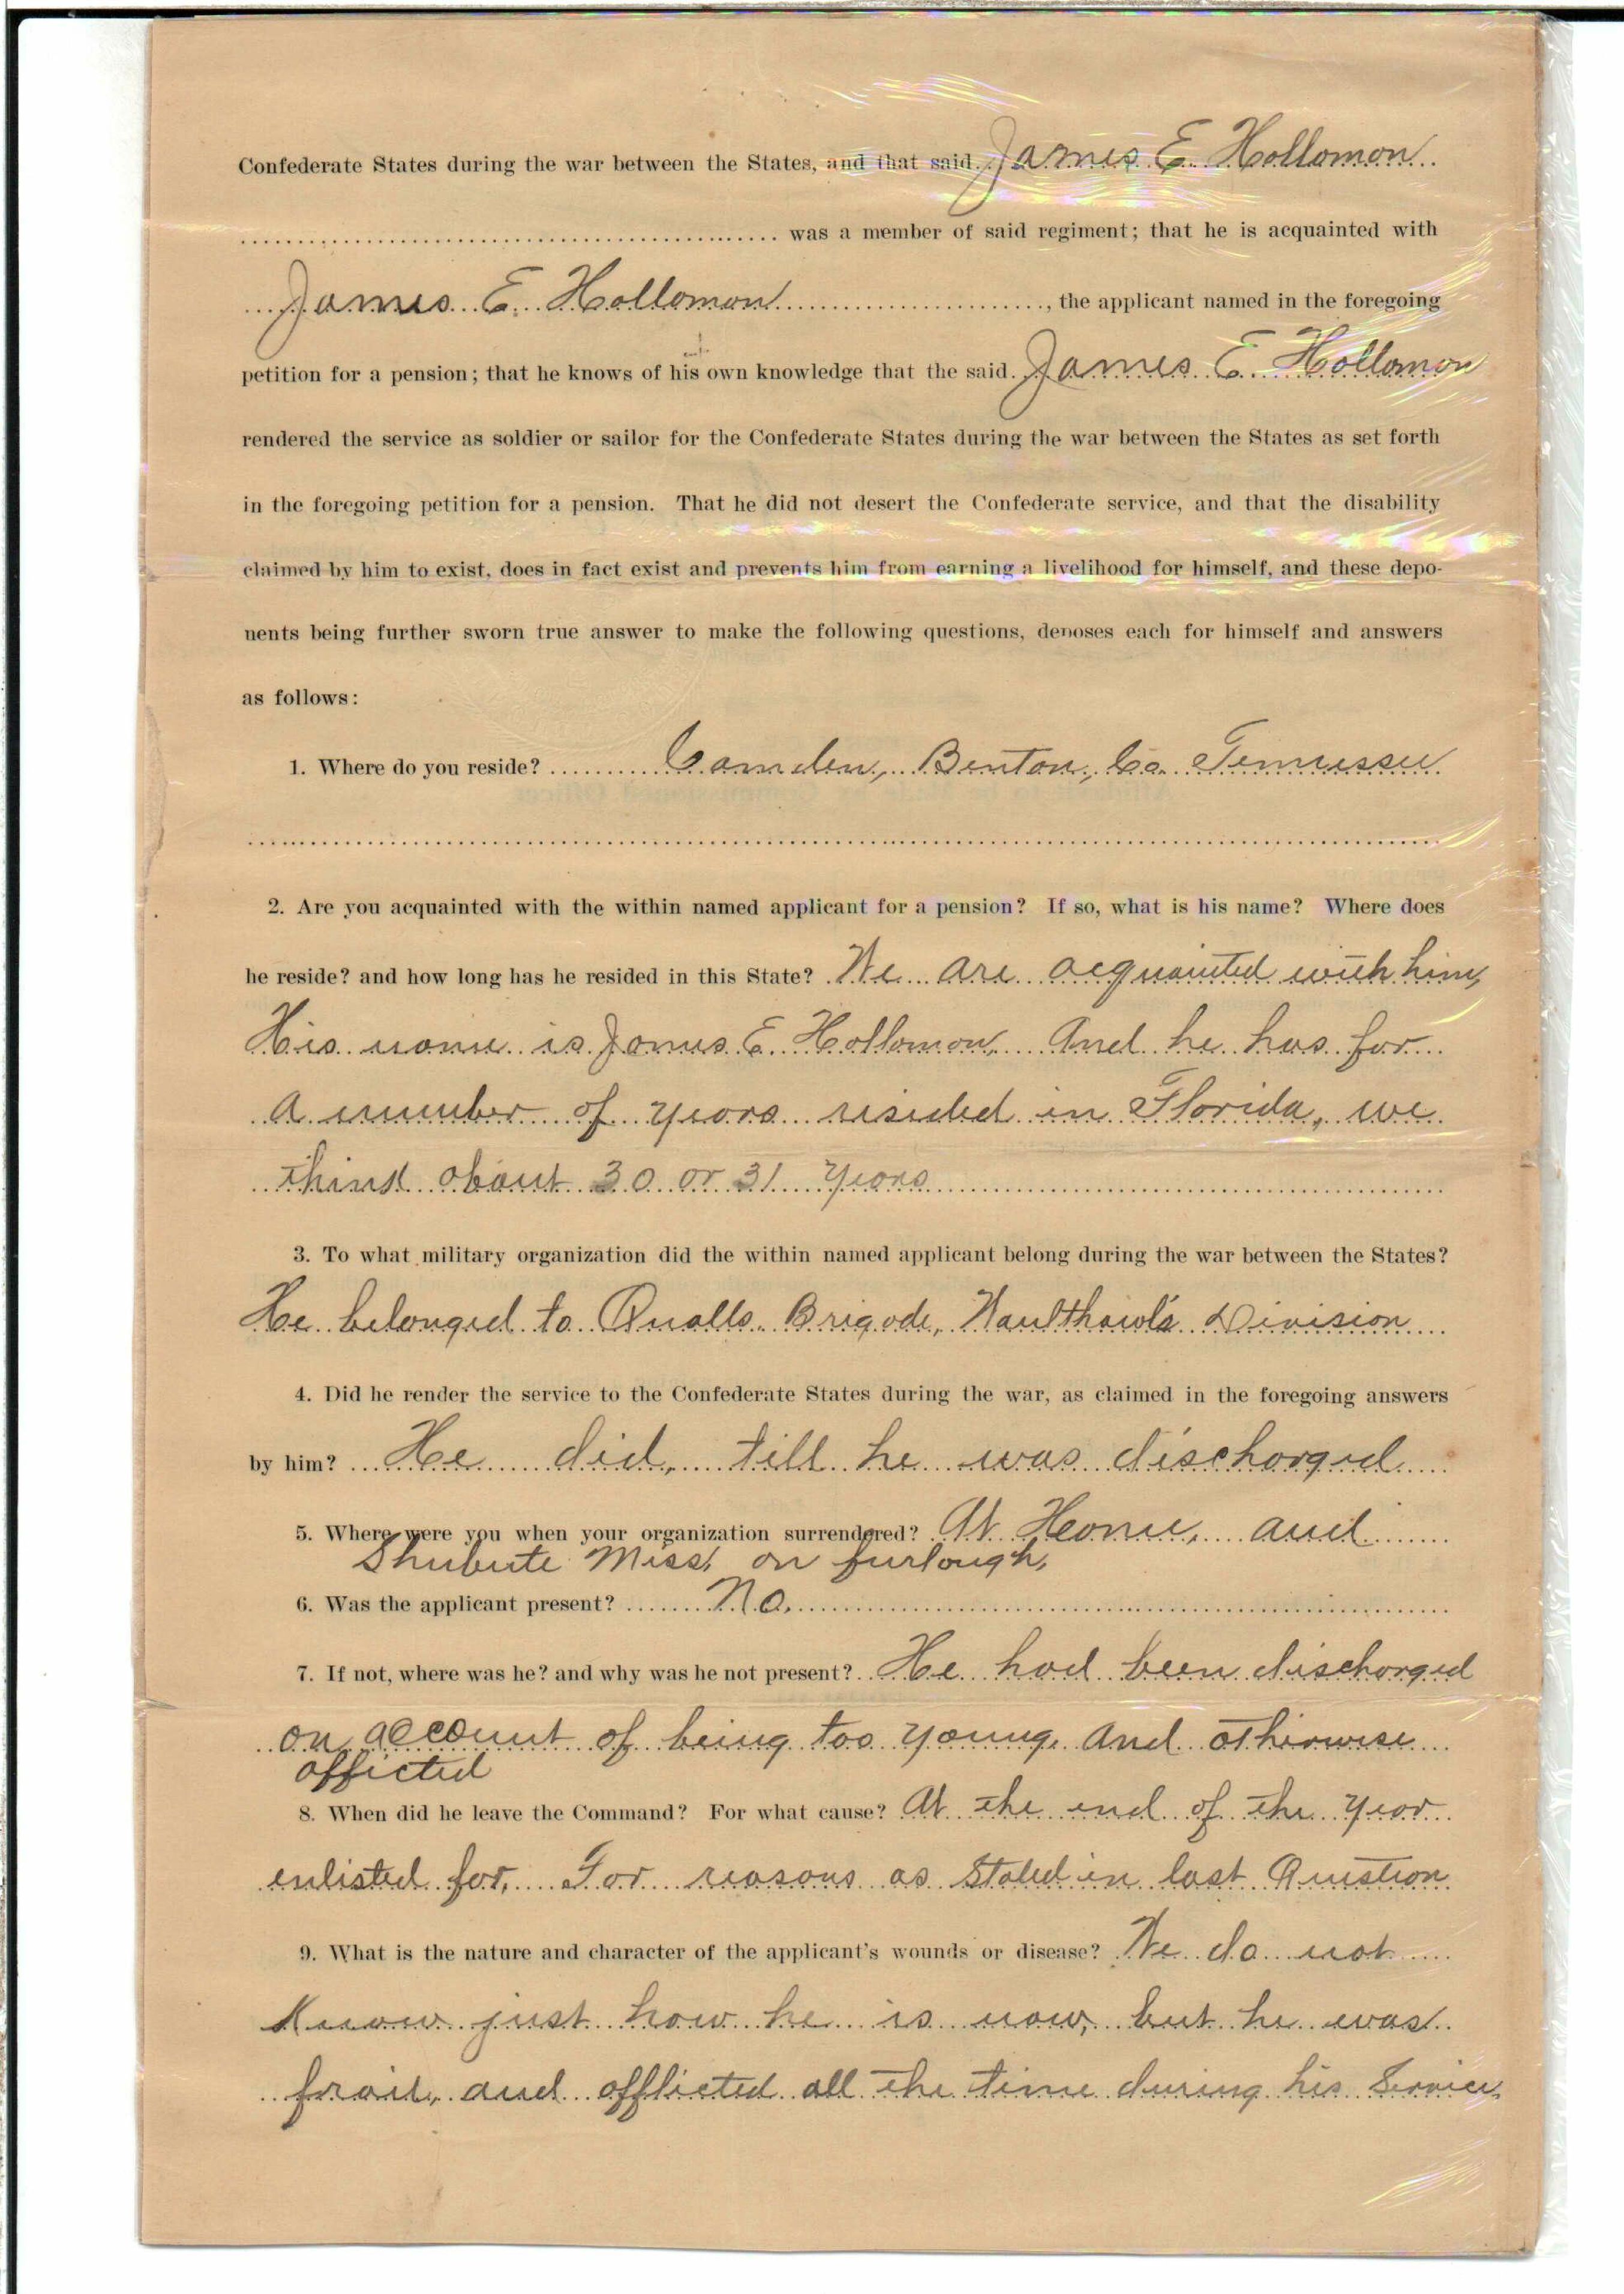 Confederate States during the war between the States, and that said James E. Hollomon
was a member of said regiment; that he is acquainted with
James E. Hollomon, the applicant named in the foregoing
petition for a pension; that he knows of his own knowledge that the said James E. Hollomon
rendered the service as soldier or sailor for the Confederate States during the war between the States as set forth
in the foregoing petition for a pension. That he did not desert the Confederate service, and that the disability
claimed by him to exist, does in fact exist and prevents him from earning a livelihood for himself, and these depo-
nents being further sworn true answer to make the following questions, deposes each for himself and answers
as follows:
1. Where do you reside? Camden, Benton, Co. Tennessee
2. Are you acquainted with the within named applicant for a pension? If so, what is his name? Where does
he reside? and how long has he resided in this State? We are acquainted with him,
His name is James E. Hollomon. And he has for
a number of years resided in Florida, we
think about 30 or 31 years
3. To what military organization did the within named applicant belong during the war between the States?
He belonged to Qualls Brigade, Division
4. Did he render the service to the Confederate States during the war, as claimed in the foregoing answers
by him? He did, till he was discharged
5. Where were you when your organization surrendered? At Home, and
Shubute Miss, on furlough,
6. Was the applicant present? No.
7. If not, where was he? and why was he not present? He had been discharged
on account of being too young. And otherwise
afficted
8. When did he leave the Command? For what cause? At the end of the year
enlisted for. For reasons as stated in last Question
9. What is the nature and character of the applicant's wounds or disease? We do not
know just how he is now, but he was
frail, and afflicted all the time during his Service,